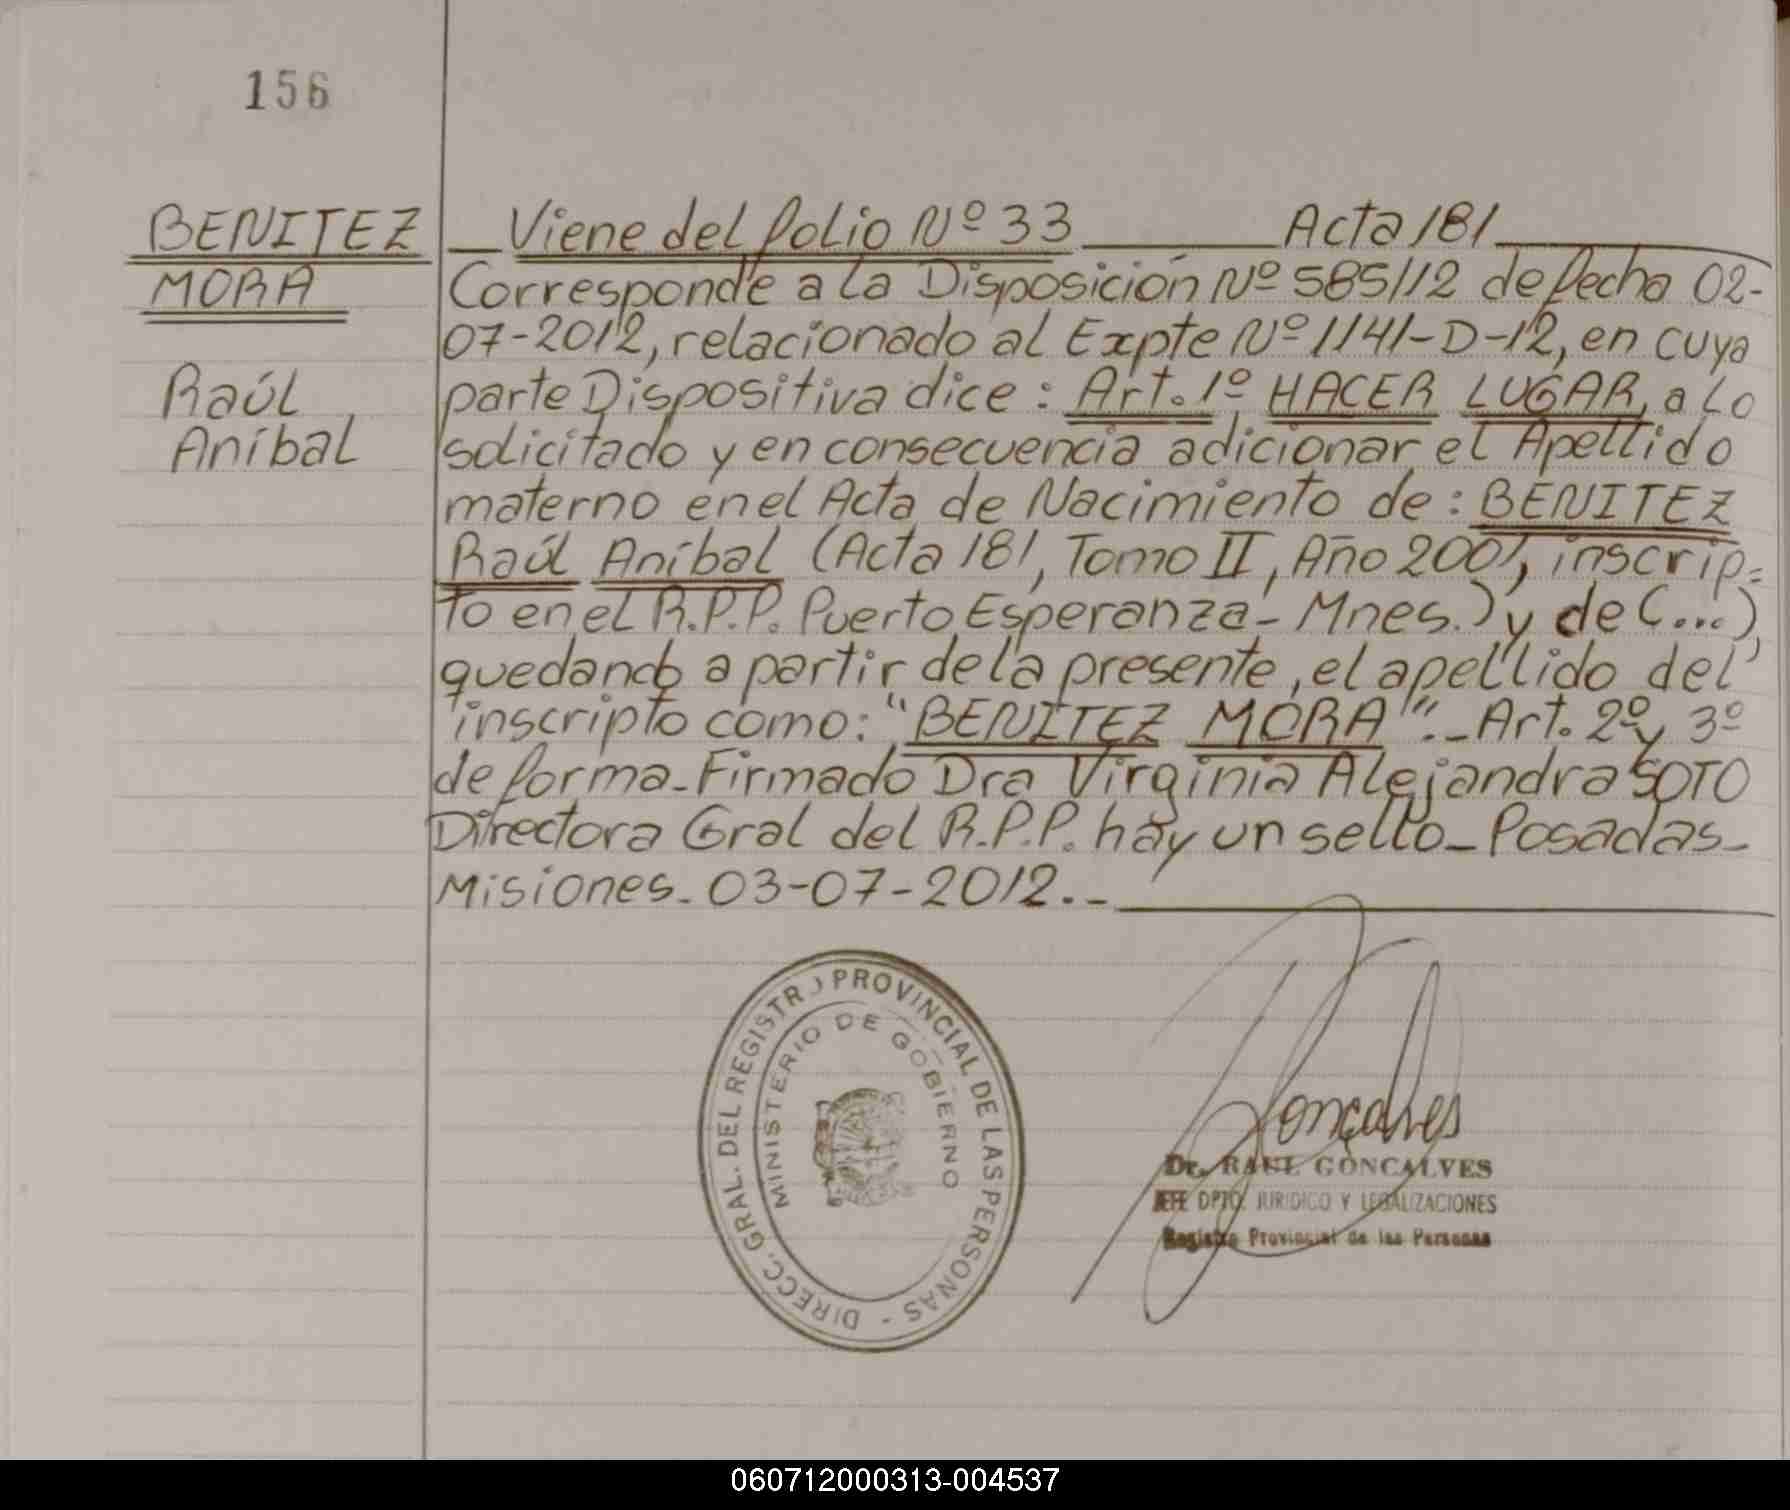 156
BENITEZ
MORA
Raúl
Aníbal
Viene del folio Nº 33 Acta 181
Corresponde a la Disposición Nº 585/12 de fecha 02-
07-2012, relacionado al Expte Nº 1141-D-12, en cuya
parte Dispositiva dice: Art. 1º HACER LUGAR, a lo
solicitado y en consecuencia adicionar el Apellido
materno en el Acta de Nacimiento de: BENITEZ
Raúl Aníbal (Acta 181, Tomo II, Año 2001, inscrip=
to en el R.P.P. Puerto Esperanza- Mnes.) y de (...),
quedando a partir de la presente, el apellido del
inscripto como: "BENITEZ MORA".- Art. 2º y 3º
de forma-Firmado Dra Virginia Alejandra SOTO
Directora Gral del R.P.P. hay un sello- Posadas-
Misiones- 03-07-2012.-
DIRECC. GRAL. DEL REGISTRO PROVINCIAL DE LAS PERSONAS -
MINISTERIO DE GOBIERNO
Goncalves
Dr. RAUL GONCALVES
JEFE DPTO. JURIDICO Y LEGALIZACIONES
Registro Provincial de las Personas
060712000313-004537